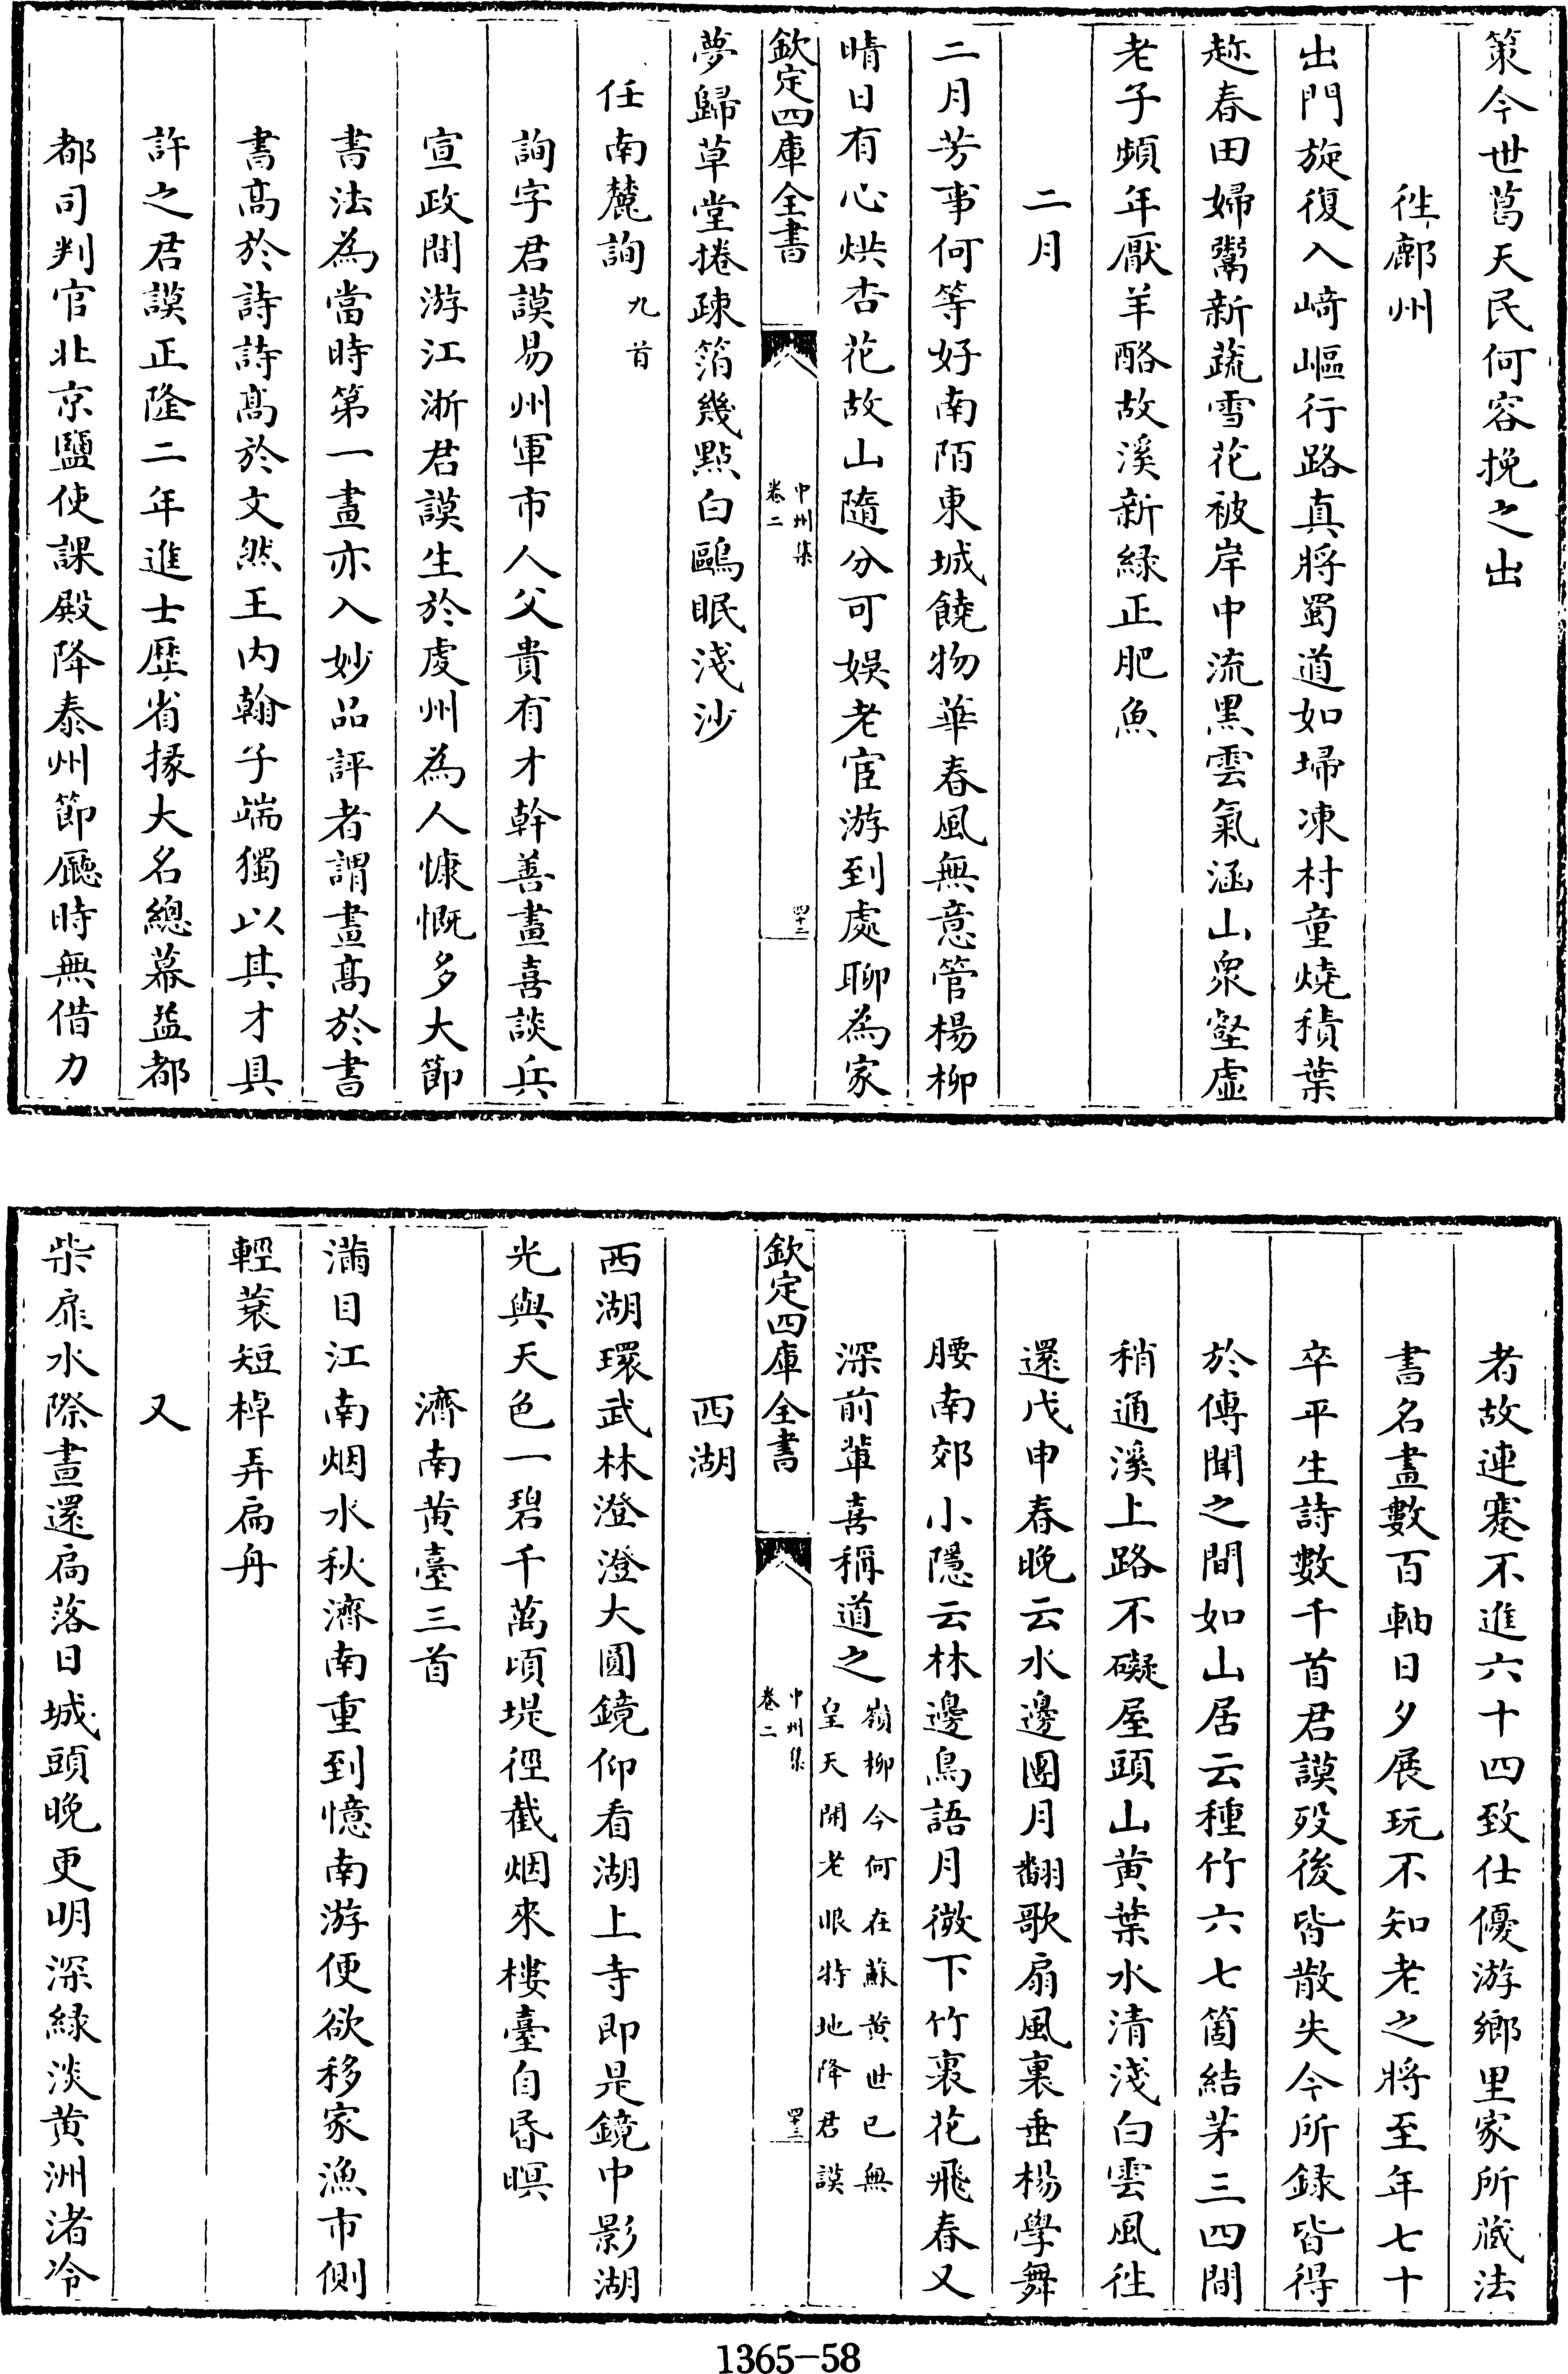 策今世葛天民何容挽之出
徃鄜州
出門旋復入﨑嶇行路真將蜀道如埽凍村童燒積葉
趂春田婦鬻新蔬雪花被岸中流黒雲氣涵山衆壑虛
老子頻年厭羊酪故溪新緑正肥魚
二月
二月芳事何等好南陌東城饒物華春風無意管楊柳
晴日有心烘杏花故山隨分可娛老宦游到處聊為家
欽定四庫全書
中州集
卷二
四十二
夢歸草堂捲疎箔幾點白鷗眠淺沙
任南麓詢九首
詢字君謨易州軍市人父貴有才幹善畫喜談兵
宣政間游江浙君謨生於虔州為人慷慨多大節
書法為當時第一畫亦入妙品評者謂畫髙於書
書髙於詩詩髙於文然王内翰子端獨以其才具
許之君謨正隆二年進士歴省掾大名總幕益都
都司判官北京鹽使課殿降泰州節廳時無借力
者故連蹇不進六十四致仕優游鄉里家所藏法
書名畫數百軸日夕展玩不知老之將至年七十
卒平生詩數千首君謨殁後皆散失今所録皆得
於傳聞之間如山居云種竹六七箇結茅三四間
稍通溪上路不礙屋頭山黄葉水清淺白雲風徃
還戊申春晚云水邊團月翻歌扇風裏垂楊學舞
腰南郊小隱云林邊鳥語月微下竹裏花飛春又
深前輩喜稱道之嶺柳今何在蘇黄世已無
皇天開老眼特地降君謨
欽定四庫全書
中州集
卷二
四十三
西湖
西湖環武林澄澄大圓鏡仰看湖上寺即是鏡中影湖
光與天色一碧千萬頃堤徑截烟來樓臺自昏暝
濟南黄臺三首
滿目江南烟水秋濟南重到憶南游便欲移家漁市側
輕蓑短棹弄扁舟
又
柴扉水際晝還扃落日城頭晚更明深緑淡黄洲渚冷
1365-58